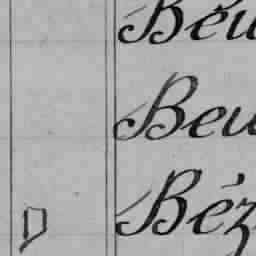 Beu
Beu
D Béz